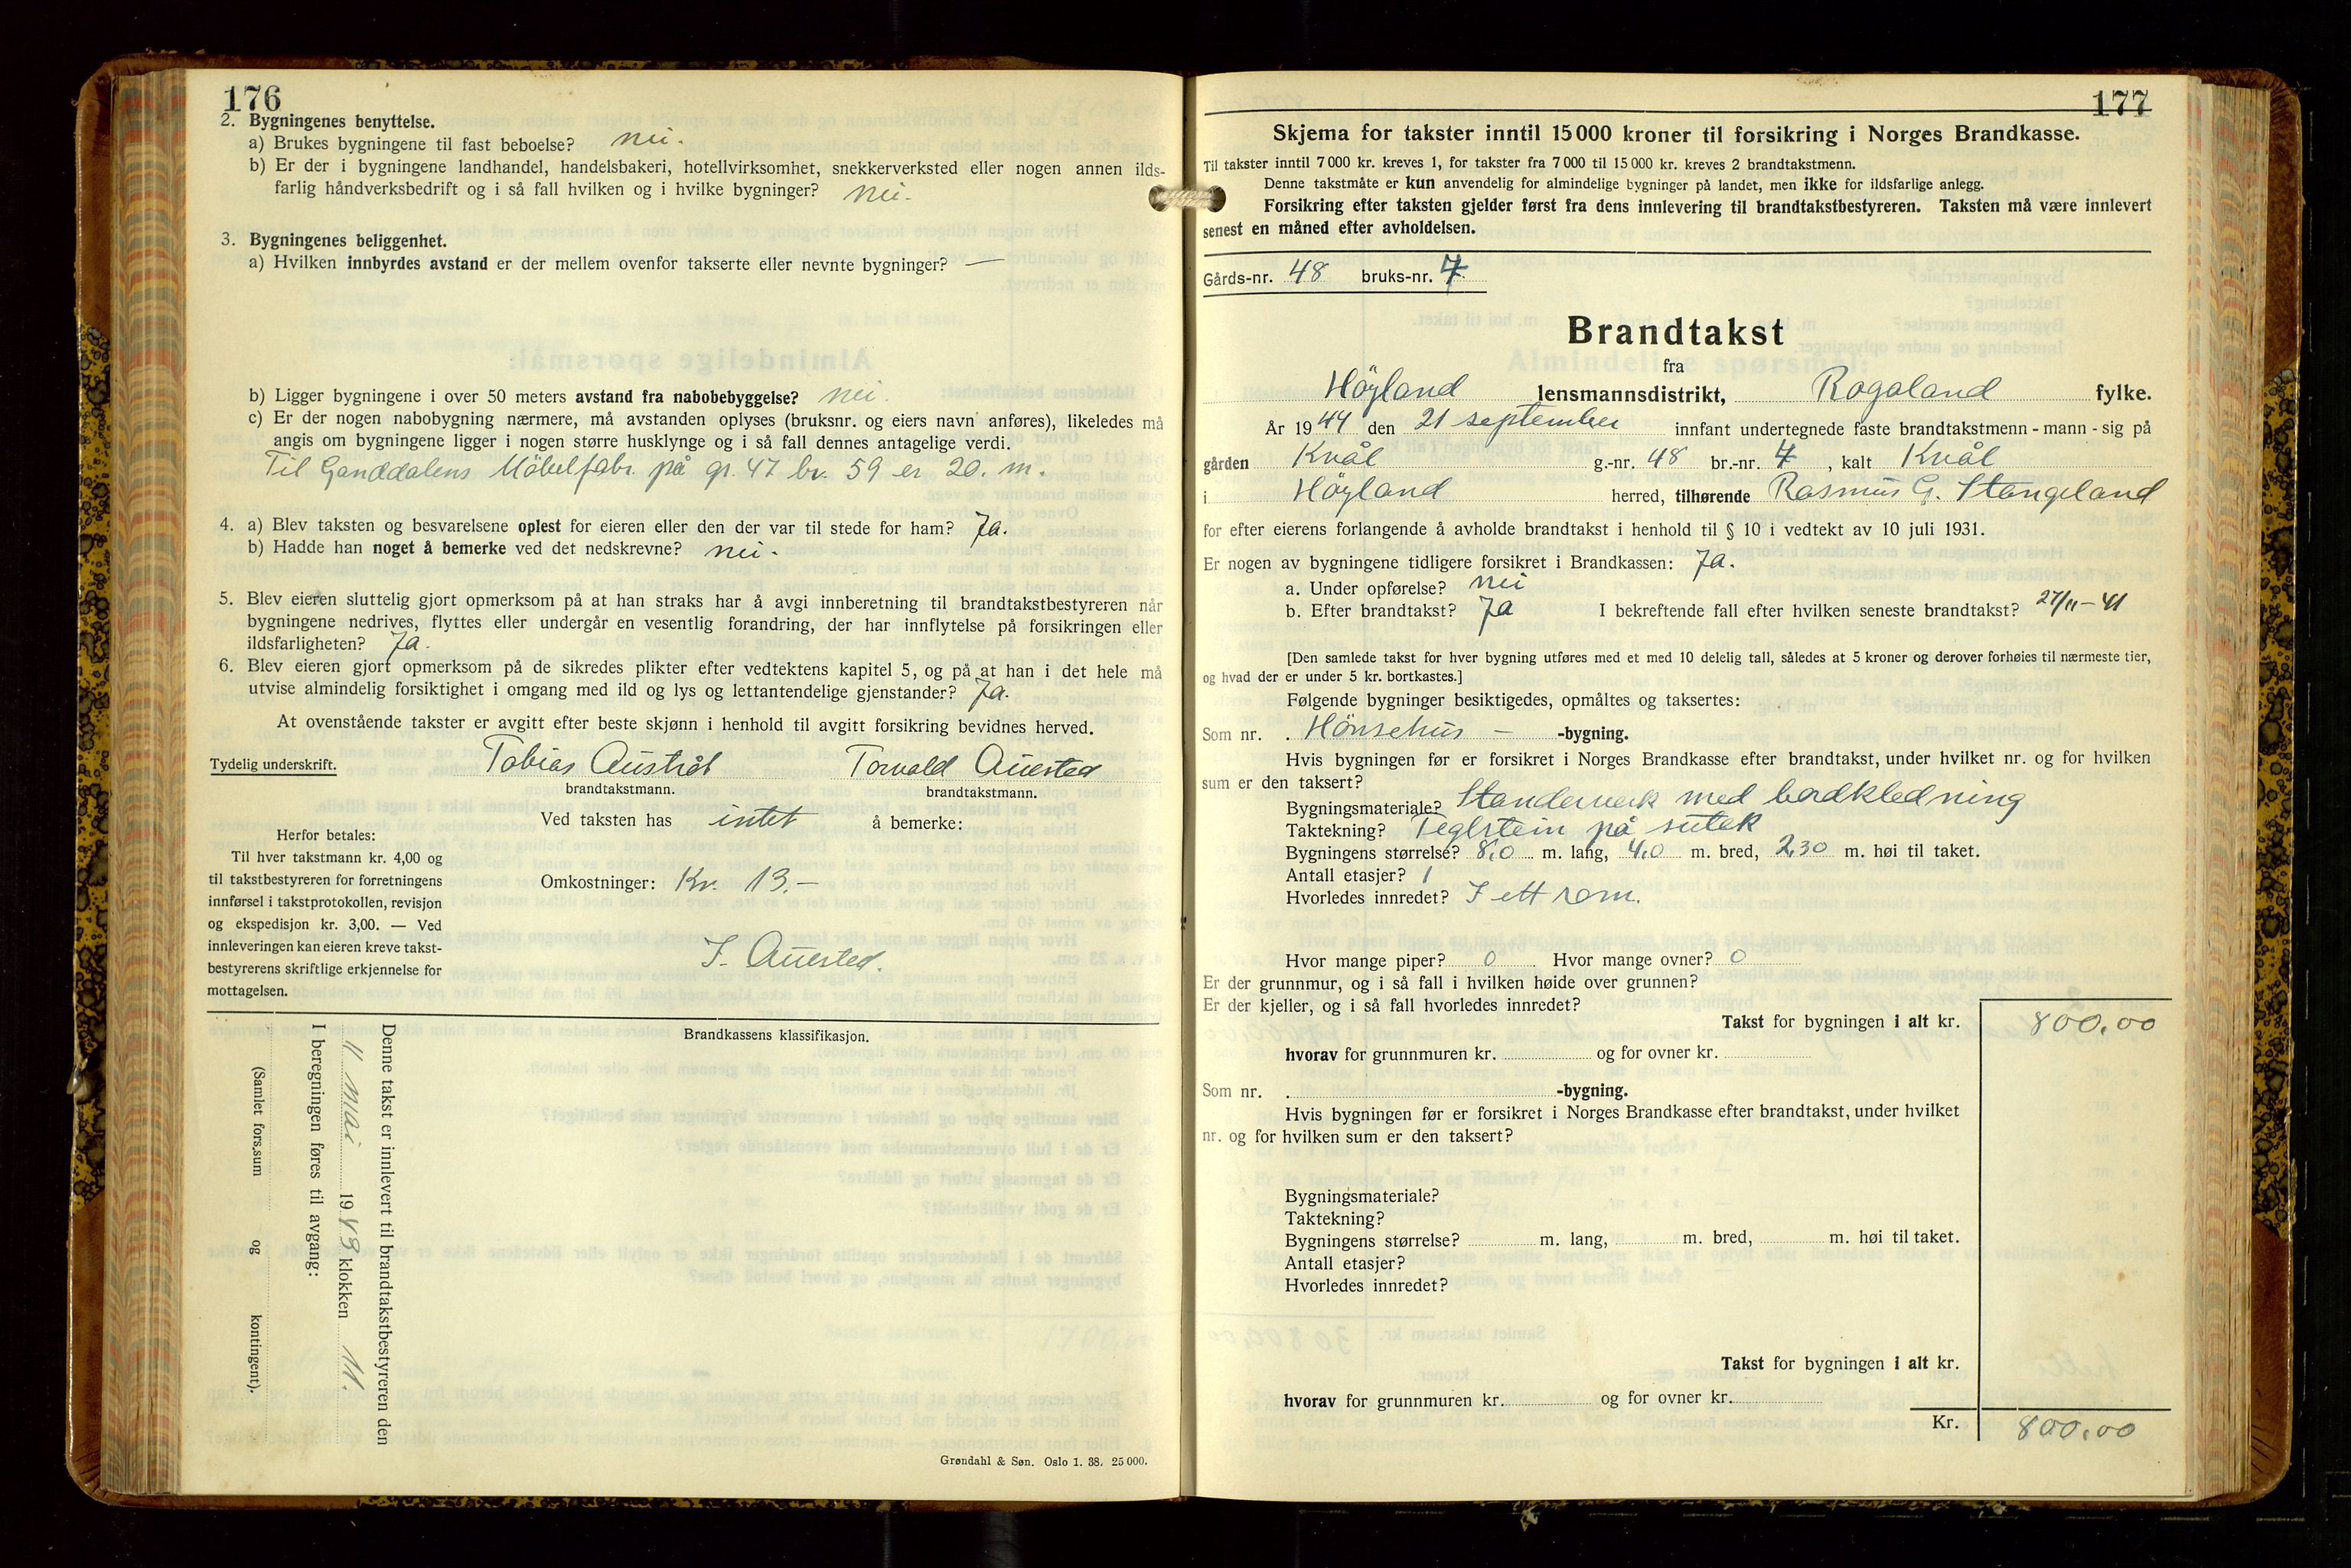 176
2. Bygningenes benyttelse.
a) Brukes bygningene til fast beboelse? nei.
b) Er der i bygningene landhandel, handelsbakeri, hotellvirksomhet, snekkerverksted eller nogen annen ilds-
farlig håndverksbedrift og i så fall hvilken og i hvilke bygninger? nei.
3. Bygningenes beliggenhet.
a) Hvilken innbyrdes avstand er der mellem ovenfor takserte eller nevnte bygninger? —
b) Ligger bygningene i over 50 meters avstand fra nabobebyggelse? nei.
c) Er der nogen nabobygning nærmere, må avstanden oplyses (bruksnr. og eiers navn anføres), likeledes må
angis om bygningene ligger i nogen større husklynge og i så fall dennes antagelige verdi.
Til Ganddalens Møbelfabr. på gr. 47 br. 59 er 20. m.
4. a) Blev taksten og besvarelsene oplest for eieren eller den der var til stede for ham? Ja.
b) Hadde han noget å bemerke ved det nedskrevne? nei.
5. Blev eieren sluttelig gjort opmerksom på at han straks har å avgi innberetning til brandtakstbestyreren når
bygningene nedrives, flyttes eller undergår en vesentlig forandring, der har innflytelse på forsikringen eller
ildsfarligheten? Ja.
6. Blev eieren gjort opmerksom på de sikredes plikter efter vedtektens kapitel 5, og på at han i det hele må
utvise almindelig forsiktighet i omgang med ild og lys og lettantendelige gjenstander? Ja.
At ovenstående takster er avgitt efter beste skjønn i henhold til avgitt forsikring bevidnes herved.
Tydelig underskrift. Tobias Austråt Torvald Auestad
brandtakstmann. brandtakstmann.
Ved taksten has intet å bemerke:
Herfor betales:
Til hver takstmann kr. 4,00 og
til takstbestyreren for forretningens
innførsel i takstprotokollen, revisjon
og ekspedisjon kr. 3,00. — Ved
innleveringen kan eieren kreve takst-
bestyrerens skriftlige erkjennelse for
mottagelsen.
Omkostninger: Kr. 13.—
T. Auestad.
Brandkassens klassifikasjon.
Denne takst er innlevert til brandtakstbestyreren den
11 mai 1943 klokken 11.
I beregningen føres til avgang:
(Samlet fors.sum og kontingent).
Grøndahl & Søn. Oslo 1. 38. 25 000.
177
Skjema for takster inntil 15 000 kroner til forsikring i Norges Brandkasse.
Til takster inntil 7 000 kr. kreves 1, for takster fra 7 000 til 15 000 kr. kreves 2 brandtakstmenn.
Denne takstmåte er kun anvendelig for almindelige bygninger på landet, men ikke for ildsfarlige anlegg.
Forsikring efter taksten gjelder først fra dens innlevering til brandtakstbestyreren. Taksten må være innlevert
senest en måned efter avholdelsen.
Gårds-nr. 48 bruks-nr. 4
Brandtakst
fra
Høyland lensmannsdistrikt, Rogaland fylke.
År 1944 den 21 september innfant undertegnede faste brandtakstmenn - mann - sig på
gården Kvål g.-nr. 48 br.-nr. 4, kalt Kvål
i Høyland herred, tilhørende Rasmus G. Stangeland
for efter eierens forlangende å avholde brandtakst i henhold til § 10 i vedtekt av 10 juli 1931.
Er nogen av bygningene tidligere forsikret i Brandkassen: Ja.
a. Under opførelse? nei
b. Efter brandtakst? Ja I bekreftende fall efter hvilken seneste brandtakst? 27/11-41
[Den samlede takst for hver bygning utføres med et med 10 delelig tall, således at 5 kroner og derover forhøies til nærmeste tier,
og hvad der er under 5 kr. bortkastes.]
Følgende bygninger besiktigedes, opmåltes og taksertes:
Som nr. . Hönsehus — -bygning.
Hvis bygningen før er forsikret i Norges Brandkasse efter brandtakst, under hvilket nr. og for hvilken
sum er den taksert?
Bygningsmateriale? Standerverk med bordkledning
Taktekning? Teglstein på sutak
Bygningens størrelse? 8,0 m. lang, 4,0 m. bred, 2,30 m. høi til taket.
Antall etasjer? 1
Hvorledes innredet? I ett rom.
Hvor mange piper? 0 Hvor mange ovner? 0
Er der grunnmur, og i så fall i hvilken høide over grunnen?
Er der kjeller, og i så fall hvorledes innredet?
Takst for bygningen i alt kr. 800,00
hvorav for grunnmuren kr. og for ovner kr.
Som nr. . -bygning.
Hvis bygningen før er forsikret i Norges Brandkasse efter brandtakst, under hvilket
nr. og for hvilken sum er den taksert?
Bygningsmateriale?
Taktekning?
Bygningens størrelse? m. lang, m. bred, m. høi til taket.
Antall etasjer?
Hvorledes innredet?
Takst for bygningen i alt kr.
hvorav for grunnmuren kr. og for ovner kr.
Kr. 800,00